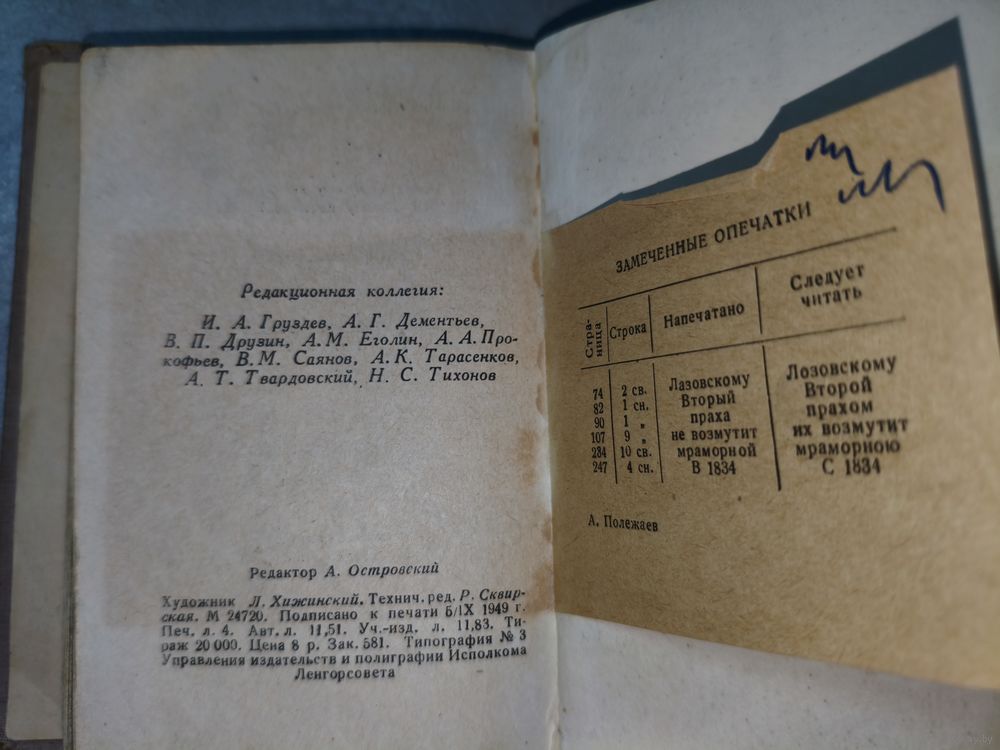 Редакционная коллегия:
И. А. Груздев, А. Г. Дементьев,
В. П. Друзин, А. М. Еголин, А. А. Про-
кофьев, В. М. Саянов, А. К. Тарасенков,
А. Т. Твардовский, Н. С. Тихонов
Редактор А. Островский
Художник Л. Хижинский. Технич. ред. Р. Сквир-
ская. М 24720. Подписано к печати 5/IX 1949 г.
Печ. л. 4. Авт. л. 11,51. Уч.-изд. л. 11,83. Ти-
раж 20 000. Цена 8 р. Зак. 581. Типография № 3
Управления издательств и полиграфии Исполкома
Ленгорсовета
ЗАМЕЧЕННЫЕ ОПЕЧАТКИ
Стра-
ница Строка Напечатано Следует
читать
74 2 св. Лазовскому Лозовскому
82 1 сн. Вторый Второй
90 1 „ праха прахом
107 9 „ не возмутит их возмутит
234 10 св. мраморной мраморною
247 4 сн. В 1834 С 1834
А. Полежаев